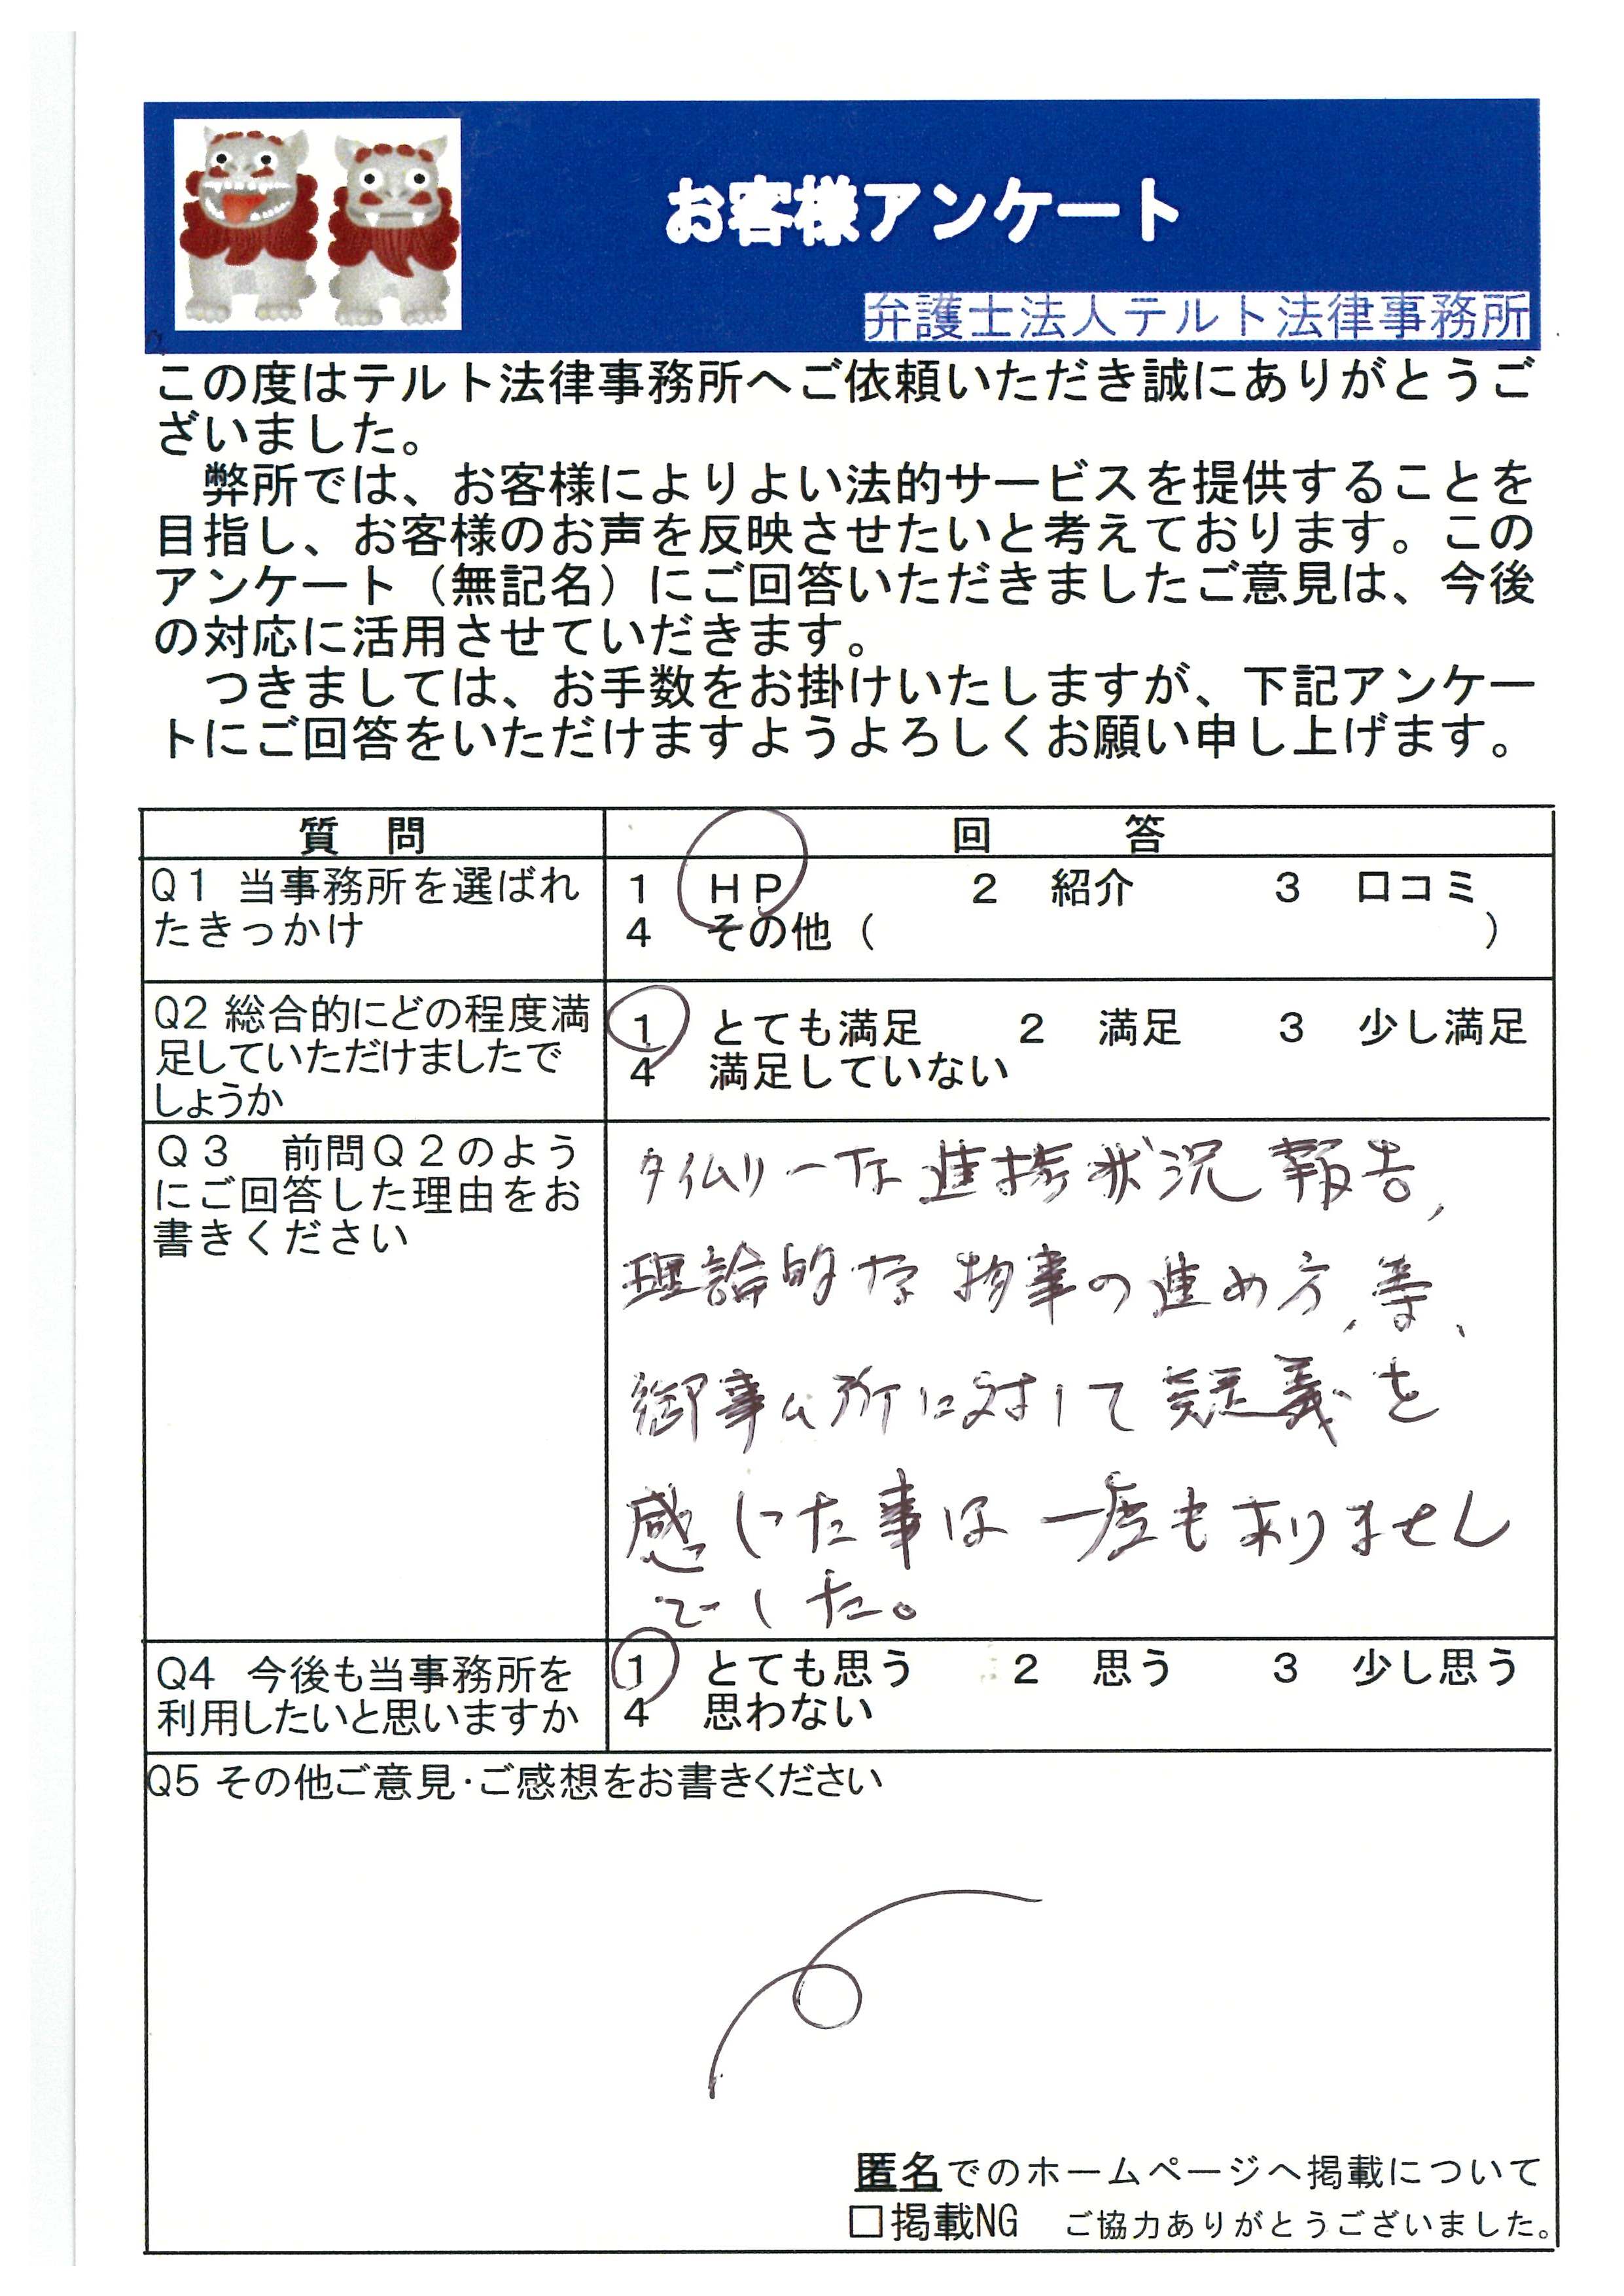 お客様アンケート
弁護士法人テルト法律事務所
この度はテルト法律事務所へご依頼いただき誠にありがとうご
ざいました。
　弊所では、お客様によりよい法的サービスを提供することを
目指し、お客様のお声を反映させたいと考えております。この
アンケート（無記名）にご回答いただきましたご意見は、今後
の対応に活用させていだきます。
　つきましては、お手数をお掛けいたしますが、下記アンケー
トにご回答をいただけますようよろしくお願い申し上げます。
質　問
回　答
Q1 当事務所を選ばれ
たきっかけ
1　HP　2　紹介　3　口コミ
4　その他（　　）
Q2 総合的にどの程度満
足していただけましたで
しょうか
1　とても満足　2　満足　3　少し満足
4　満足していない
Q3　前問Q2のよう
にご回答した理由をお
書きください
タイムリーな進捗状況報告、
理論的な物事の進め方、等、
御事ム所に対して疑義を
感じた事は一度もありません
でした。
Q4　今後も当事務所を
利用したいと思いますか
1　とても思う　2　思う　3　少し思う
4　思わない
Q5 その他ご意見・ご感想をお書きください
匿名でのホームページへ掲載について
□掲載NG　ご協力ありがとうございました。